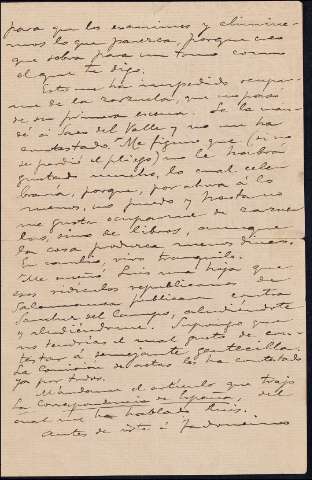 para que los examines y eliminemos
lo que parezca, porque creo
que sobra para un tomo como
el que te dije.
Esto me ha impedido ocuparme
de la zarzuela, que no pasó
de su primera escena. Se la mandé
á Ives del Valle y no me ha
contestado. Me figuro que (si no
se perdió el pliego) no le habrá
gustado mucho, lo cual celebraría,
porque, por ahora á lo
menos, no puedo y hasta no
me gusta ocuparme de
sino de libros, aunque
la cosa produzca menos dinero.
En cambio, vivo tranquilo.
Me enseñó Luis una hoja que
esos ridículos republicanos de
Salamanca publican contra
Sánchez del Campo, aludiéndote
y aludiéndome. Supongo que
no tendrías el mal gusto de contestar
á semejante gentecilla.
La Comisión de actas les ha contestado
ya por todos.
Mándame el artículo que trajo
La Correspondencia de España, del
cual me ha hablado Luis.
Antes de irte á